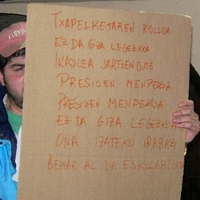 TXAPELKETAREN ROLLOA
EZ DA GIZA LEGEZKOA
IKASLEA JARTZEN DUTE
PRESIDEN MENPEKOA
PRESIDEN MENDEKOA
EZ DA GIZA LEGEZKOA
ONA IZATEKO IRABAZI
BEHAR AL DA ESKOLARTEKOA